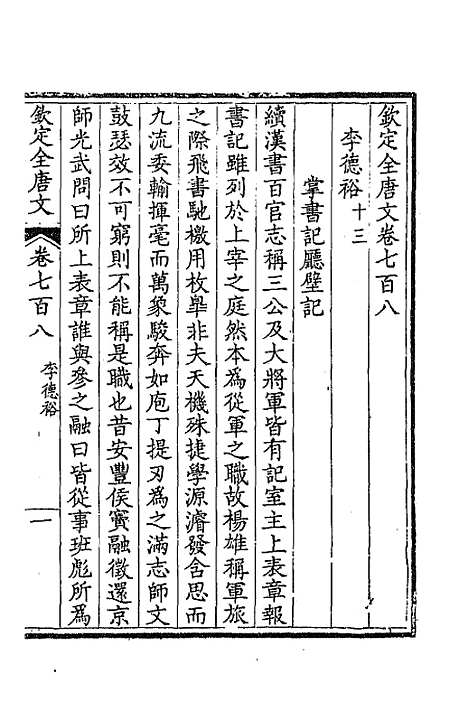 欽定全唐文卷七百八
李德裕十三
掌書記廳壁記
續漢書百官志稱三公及大將軍皆有記室主上表章報
書記雖列於上宰之庭然本為從軍之職故楊雄稱軍旅
之際飛書馳檄用枚臯非夫天機殊捷學源濬發含思而
九流委輸揮毫而萬象駿奔如庖丁提刃為之滿志師文
鼓瑟效不可窮則不能稱是職也昔安豐侯竇融徵還京
師光武問曰所上表章誰與參之融曰皆從事班彪所為
欽定全唐文
卷七百八
李德裕
一